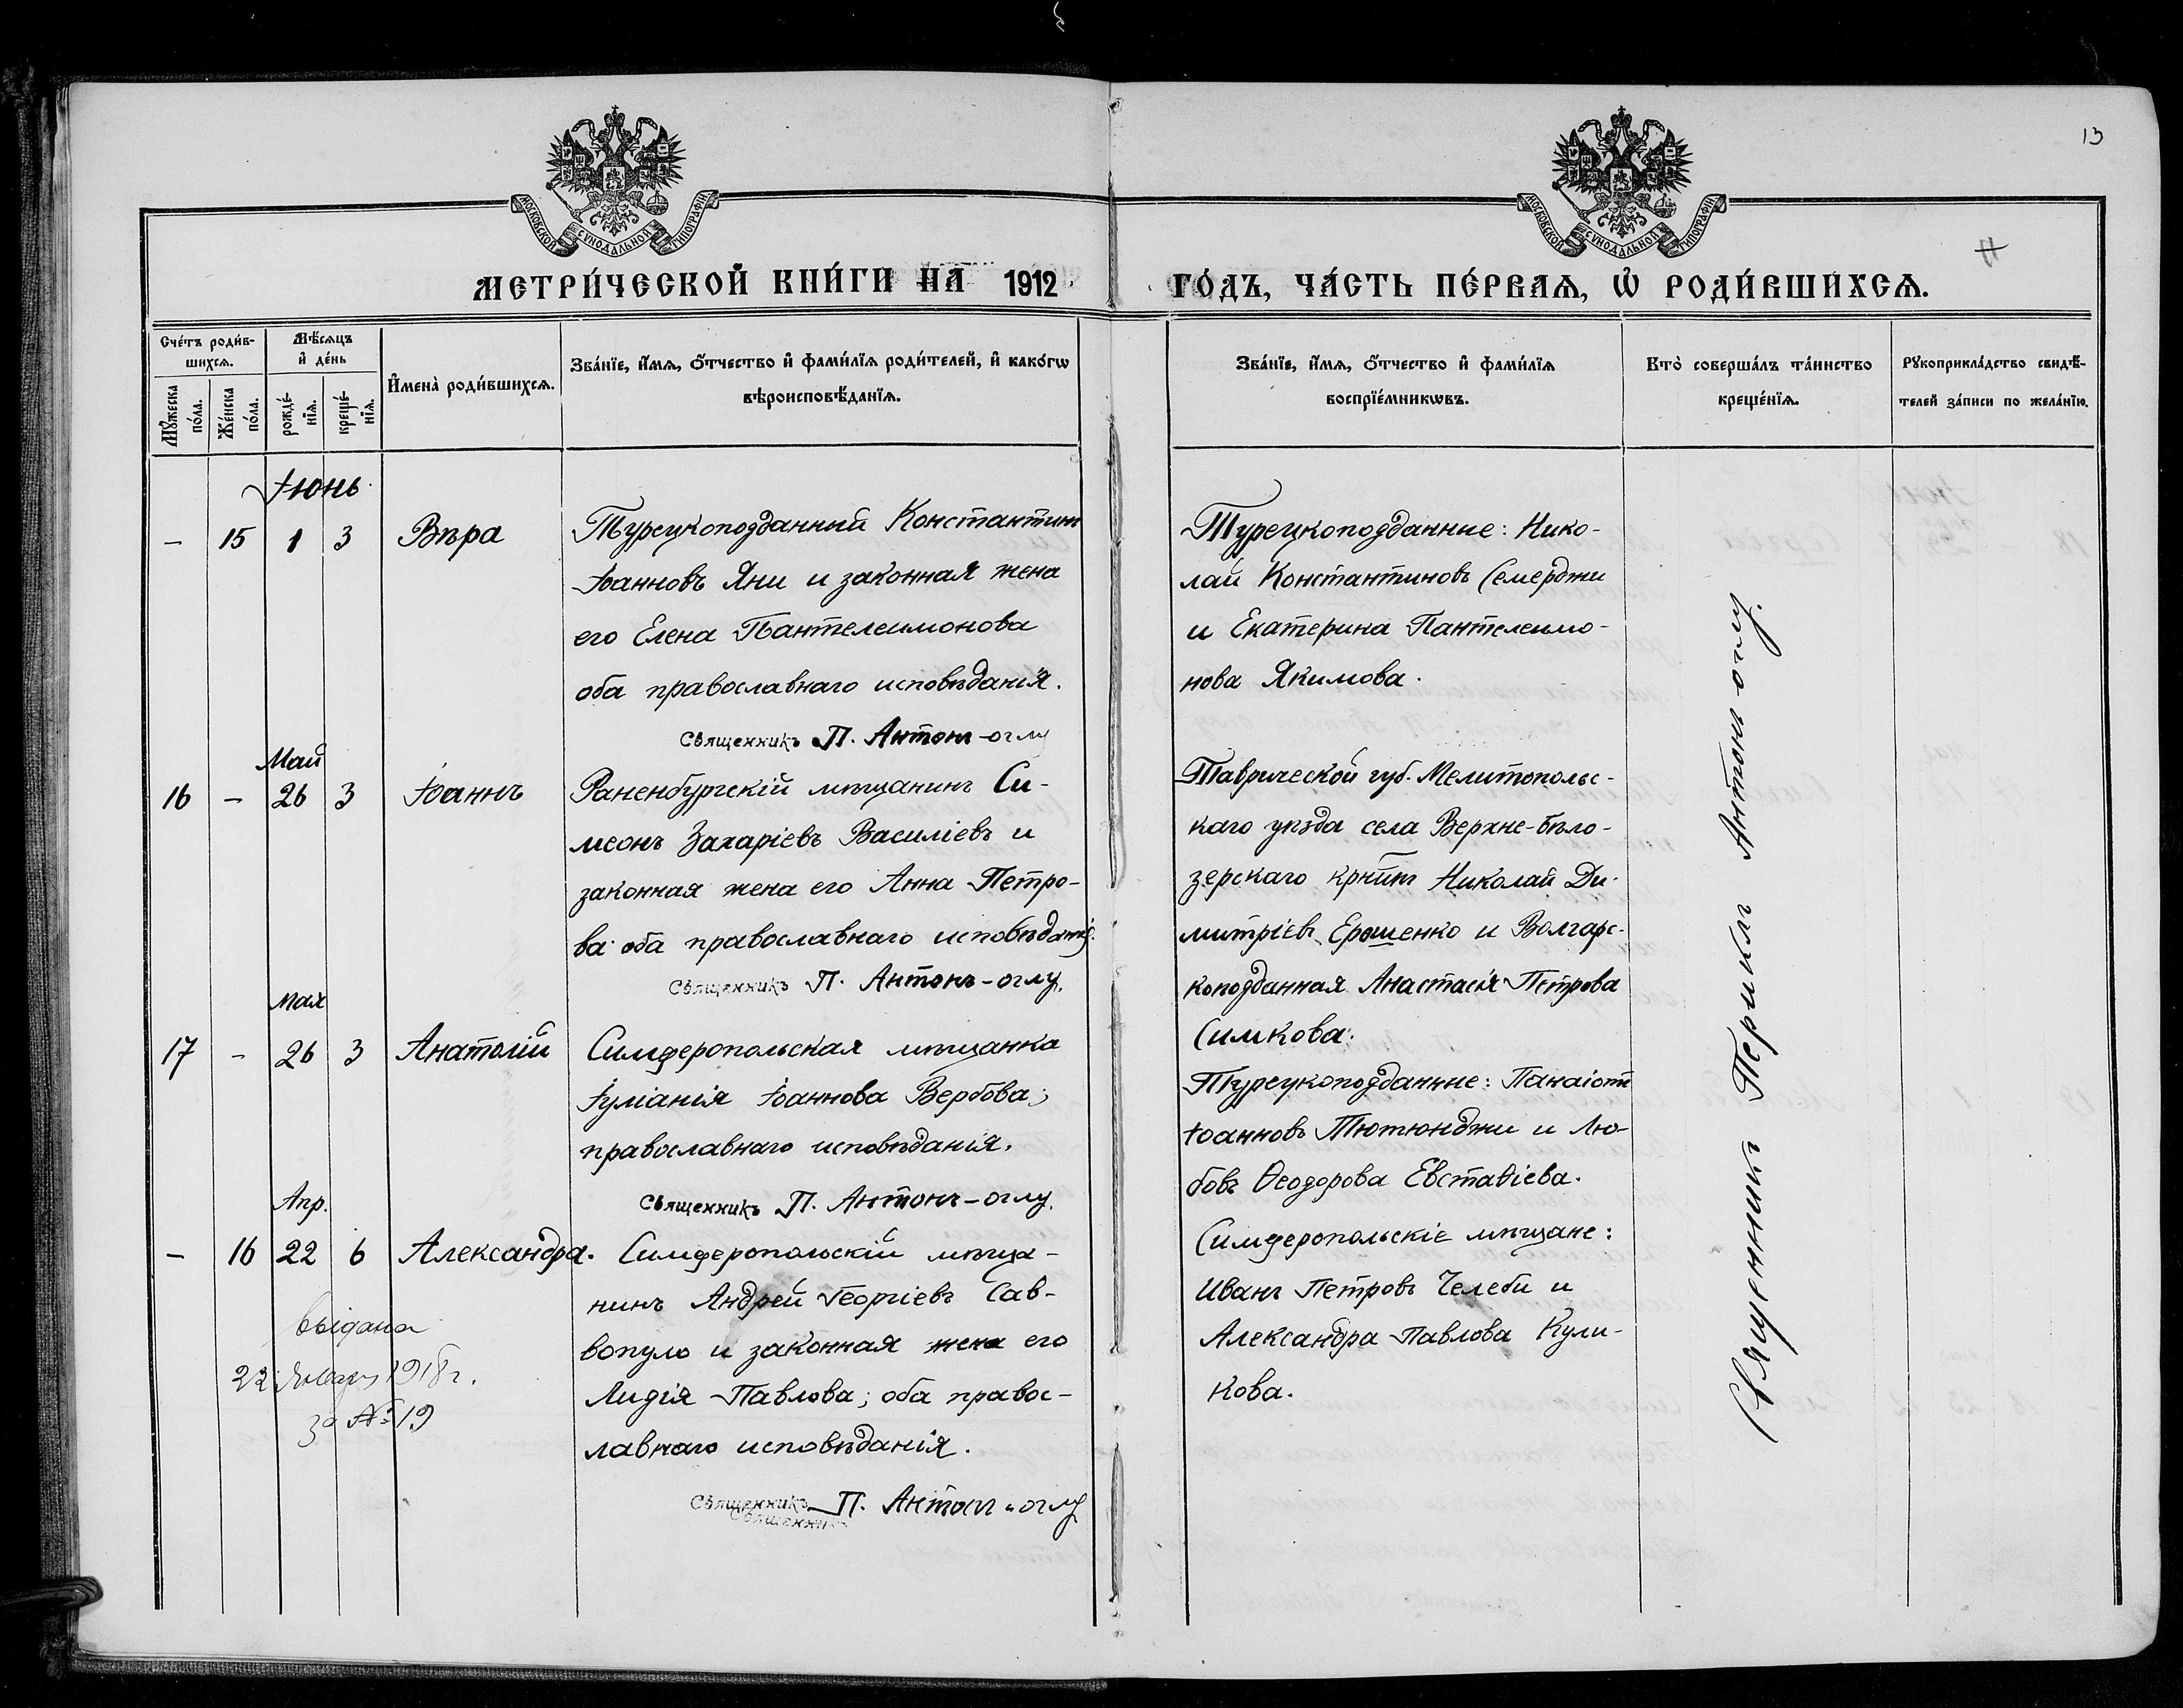 13
МОСКОВСКОЙ СѴНОДАЛЬНОЙ ТИПОГРАФІИ
МОСКОВСКОЙ СѴНОДАЛЬНОЙ ТИПОГРАФІИ
МЕТРИ́ЧЕСКОЙ КНИ́ГИ НА 1912 ГО́ДЪ, ЧА́СТЬ ПЕ́РВАѦ, Ѡ҆ РОДИ́ВШИХСѦ.
Сче́тъ роди́в-
шихсѧ.
Мꙋ́жеска по́ла.
Же́нска по́ла.
Мѣ́сѧцъ
и҆ де́нь
рожде́-
нїѧ.
креще́-
нїѧ.
И҆мена̀ роди́вшихсѧ.
Зва́нїе, и҆́мѧ, ѻ҆́тчество и҆ фами́лїѧ роди́телей, и҆ како́гѡ
вѣроисповѣ́данїѧ.
Зва́нїе, и҆́мѧ, ѻ҆́тчество и҆ фами́лїѧ
воспрїе́мникѡвъ.
Кто̀ соверша́лъ та́инство
креще́нїѧ.
Рꙋкоприкла́дство свидѣ́-
телей за́писи по жела́нїю.
Іюнь
— 15 1 3 Вѣра
Турецкоподданный Константинъ
Іоанновъ Яни и законная жена
его Елена Пантелеимонова
оба православнаго исповѣданія.
Священникъ П. Антонъ-оглу
Турецкоподданные: Нико-
лай Константиновъ Семерджи
и Екатерина Пантелеимо-
нова Якимова.
Май
16 — 26 3 Іоаннъ
Раненбургскій мѣщанинъ Си-
меонъ Захаріевъ Василіевъ и
законная жена его Анна Петро-
ва оба православнаго исповѣданія.
Священникъ П. Антонъ-оглу.
Таврической губ. Мелитопольс-
каго уѣзда села Верхне-бѣло-
зерскаго крнинъ Николай Ди-
митріевъ Ерошенко и Болгарс-
коподданная Анастасія Петрова
Симкова.
Мая
17 - 26 3 Анатолій
Симферопольская мѣщанка
Іуліанія Іоаннова Вербова;
православнаго исповѣданія.
Священникъ П. Антонъ-оглу.
Турецкоподданные: Панаіотъ
Іоанновъ Тютюнджи и Лю-
бовь Ѳеодорова Евстаѳіева.
Апр.
— 16 22 6 Александра.
Симферопольскій мѣща-
нинъ Андрей Георгіевъ Сав-
вопуло и законная жена его
Лидія Павлова; оба правос-
лавнаго исповѣданія.
Священникъ П. Антонъ-оглу
Священникъ
Симферопольскіе мѣщане:
Иванъ Петровъ Челеби и
Александра Павлова Кули-
кова.
выдана
22 Января 1918 г.
за № 19
Священникъ Периклъ Антонъ-оглу.